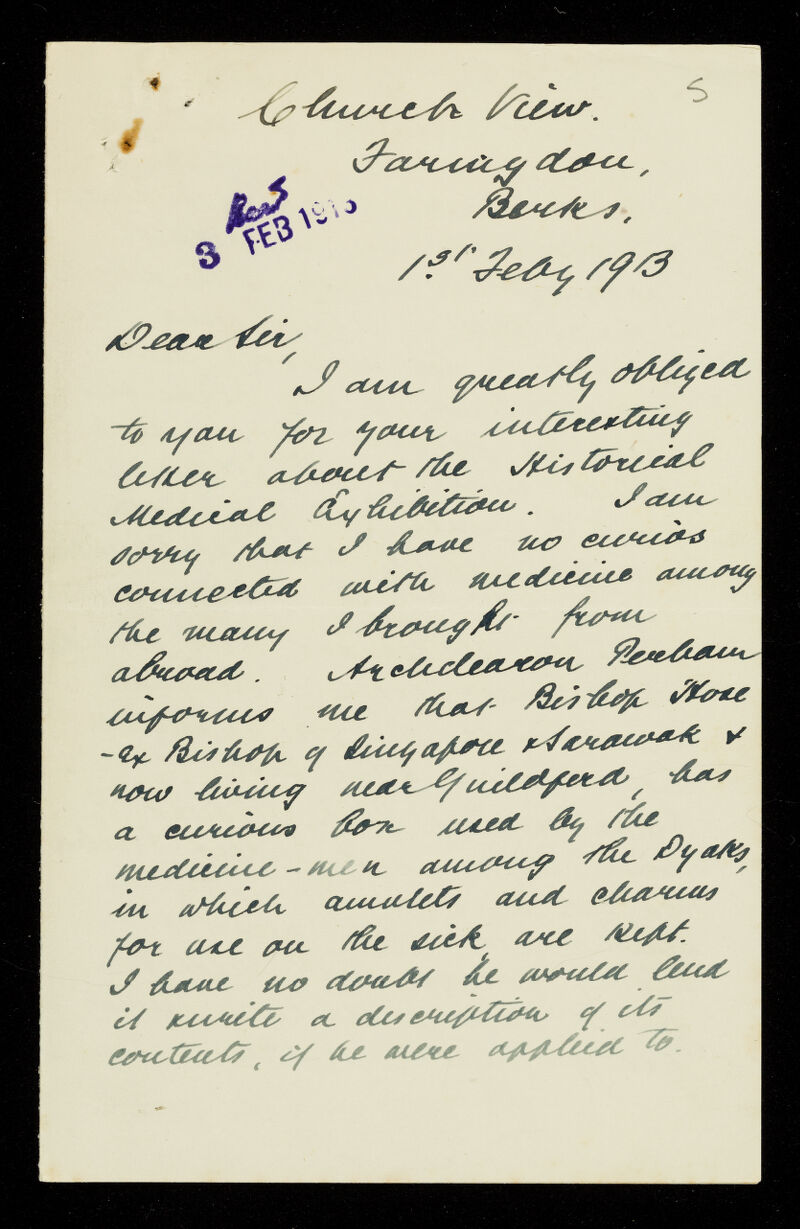 5
Church View.
Faringdon,
Berks.
Recd
3 FEB 1913
1st Feby 1913
Dear Sir,
I am greatly obliged
to you for your interesting
letter about the Historical
Medical Exhibition. I am
sorry that I have no curios
connected with medicine among
the many I brought from
abroad. Archdeacon Perham
informs me that Bishop Hose
-Ex Bishop of Singapore & Sarawak &
now living near Guildford, has
a curious box used by the
medicine-men among the Dyaks,
in which amulets and charms
for use on the sick, are kept.
I have no doubt he would lend
it & write a description of its
contents, if he were applied to.